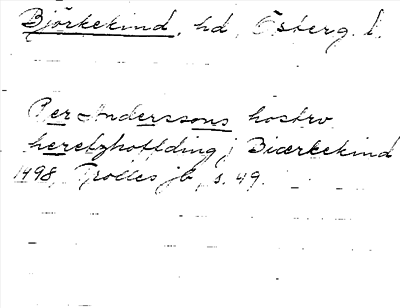 Björkekind, hd, Östberg. l.
Per Anderssons hostrv
heretzhoffding j Biærkekind
1498, Trolles jb, s. 49.